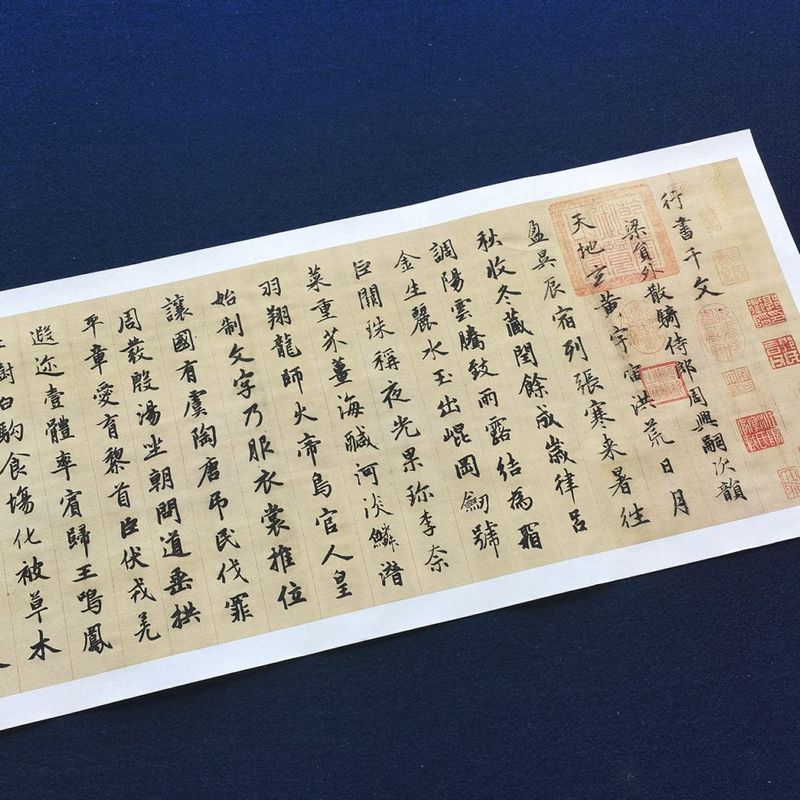 行書千文
梁員外散騎侍郎周興嗣次韻
天地玄黃宇宙洪荒日月
盈昃辰宿列張寒来暑往
秋收冬藏閏餘成歲律呂
調陽雲騰致雨露結為霜
金生麗水玉出崐岡劒號
巨闕珠稱夜光果珎李柰
菜重芥薑海鹹河淡鱗潛
羽翔龍師火帝鳥官人皇
始制文字乃服衣裳推位
讓國有虞陶唐吊民伐罪
周發殷湯坐朝問道垂拱
平章愛育黎首臣伏戎羌
遐迩壹體率賓歸王鳴鳳
樹白駒食場化被草木